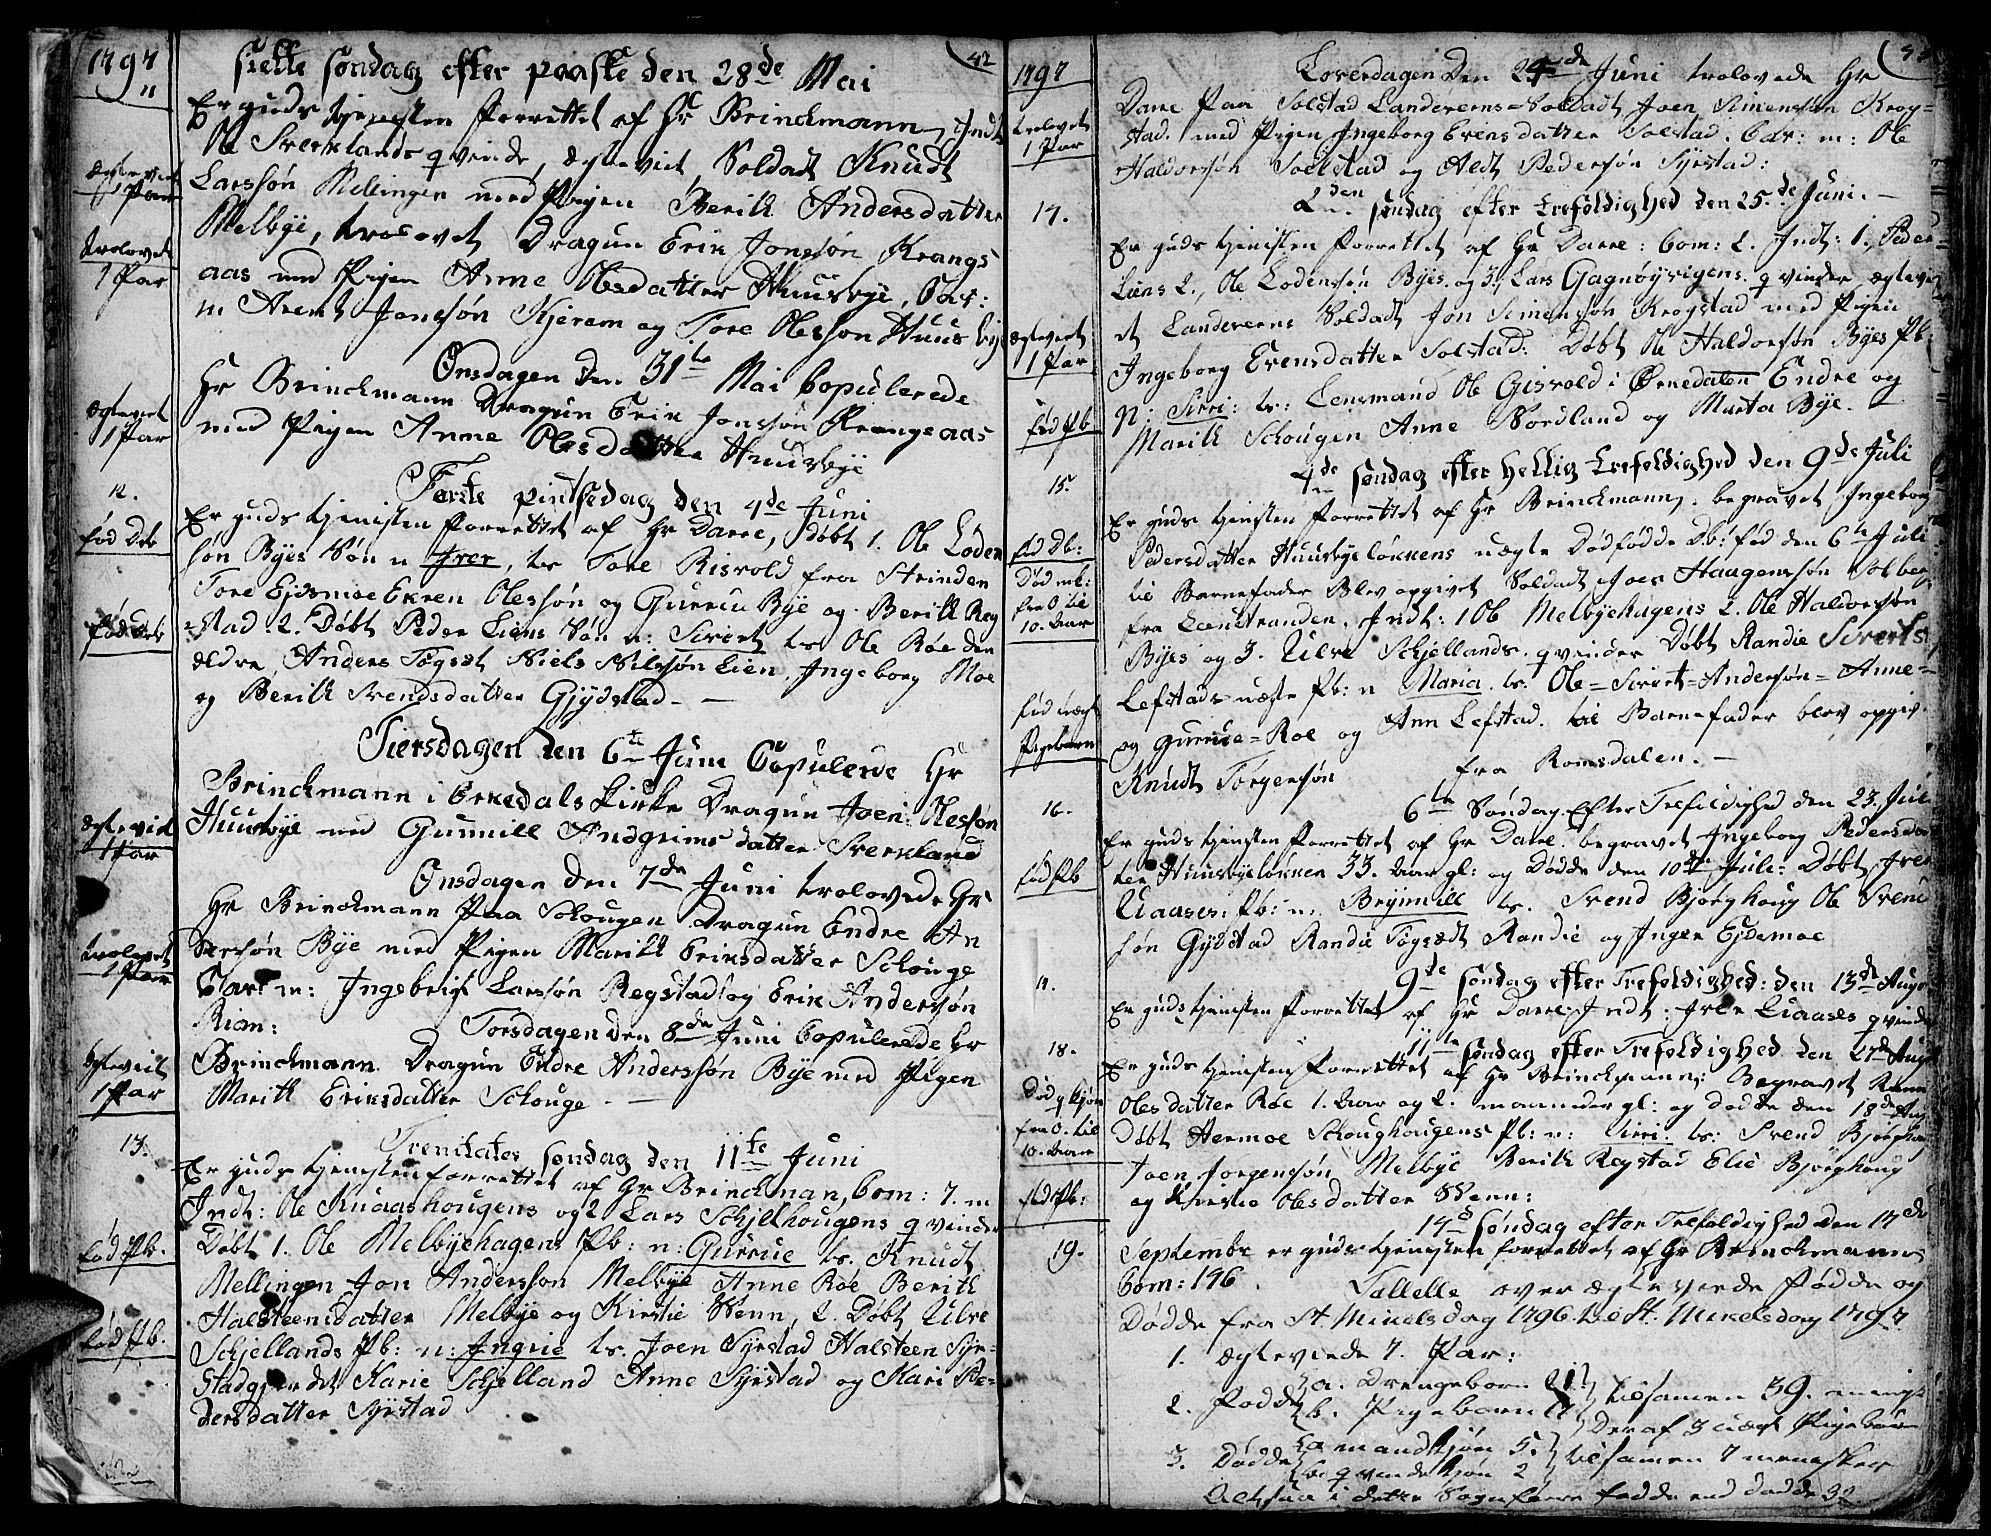 1797
11
42
siette søndag efter paaske den 28de Mai
Er guds tjenesten forrettet af Hr Brinckmann, Indt:
Ole Sverklands qvinde, ægtevied Soldadt Knudt
Larssøn Mellingen med Pigen Berith Andersdatter
Melbye, trolovet Dragun Erik Jonssøn Krangs
aas med Pigen Anne Olesdatter Huusbye, Cav:
n. Arent Jonssøn Kjeram og Tore Olessøn Huusbye
Onsdagen den 31te Mai Copulerede
Hr Brinckmann Dragun Erik Jonssøn Krangsaas
med Pigen Anne Olesdatter Huusbye
Første pintsedag den 4de Juni
Er guds tjenisten forrettet af Hr Darre, Døbt 1. Ole Loden
søn Byes Søn n Iver, ts Tore Risvold fra Strinden
Tore Ejdsmoe Ekren Olessøn og Gurru Bye og Berith Reg
stad. 2. Døbt Peder Liens Søn n: Sivert ts Ole Røe den
ældre, Anders Togset Niels Nilssøn Lien, Ingeborg Moe
og Berith Svendsdatter Gjydstad. —
Tiersdagen den 6te Juni Copulerede Hr
Brinckmann i Orkedals Kirke Dragun Joen Olessøn
Huusbye med Gunnill Andgrimsdatter Sverkland
Onsdagen den 7de Juni trolovede Hr
Hr Brinckmann paa Schougen Dragun Endre An
dersøn Bye med Pigen Marith Eriksdatter Schouge
Cav: n: Ingebrigt Larssøn Regstad og Erik Andersøn
Rian:
Torsdagen den 8de Juni Copulerede Hr
Brinckmann Dragun Endre Anderssøn Bye med Pigen
Marith Eriksdatter Schouge. —
Trenitates søndag den 11te Juni
Er guds tjenisten forrettet af Hr Brinckman, Com: 7. m
Indt: Ole Knaashougens og 2 Lars Schjelhougens qvinder
Døbt 1. Ole Melbyehagens Pb: n: Gurrue ts. Knudt
Mellingen Jon Anderssøn Melbye Anne Røe Berith
Halsteensdatter Melbye og Kirstie Wenn, 2. Døbt Ulve
Schjellands Pb: n: Ingrie ts. Joen Syrstad Halsteen Syr-
stadgjerdet Karie Schjelland Anne Syrstad og Kari Pe-
dersdatter Syrstad
ægtevied
1 Par
trolovet
1 Par
ægteviet
1 Par
12.
fød Db
fød Db
ægtevied
1 Par
trolovet
1 Par
ægteviet
1 Par
13.
fød Pb.
fød Pb.
1797
43
Løverdagen Den 24de Juni trolovede Hr
Darre Paa Solstad Landeverns=Soldadt Joen Simenssøn Krog-
stad. med Pigen Ingeborg Evensdatter Solstad. Cav: n: Ole
Haldorsøn Solstad og Arnt Pedersøn Syrstad:
2den søndag efter trefoldighed den 25de Juni. —
Er guds tjenisten forrettet af Hr Darre: Com: 2. Indt: 1. Peder
Liens 2., Ole Lodenssøn Byes og 3. Lars Gagnøyrigens qvinder, ægtevi
et Landeverns Soldadt Jon Simenssøn Krogstad med Pigen
Ingeborg Evensdatter Solstad: Døbt Ole Haldorsøn Byes Pb:
N: Sirri: ts: Lensmand Ole Gisvold i Ørkedalen Endre og
Marith Schougen Anne Nordland og Marta Bye.
4de søndag efter hellig trefoldighed den 9de Juli
Er guds tjenisten forrettet af Hr Brinckmann, begravet Ingeborg
Pedersdatter Huusbyeløkkens uægte Dødfødde Db: fød den 6te Juli
til Barnefader Blev opgivet Soldadt Joen Haugenssøn Solberg
fra Leenstranden. Indt: 1 Ole Melbyehagens 2. Ole Haldorsøn
Byes og 3. Ulve Schjellands qvinder Døbt Randie Siverts
Lefstads uægte Pb: n Maria. ts. Ole=Sivert=Andersøn=Anne=
og Gurrue=Roe og Ann Lefstad. til Barnefader blev opgiv
Knudt Torgersøn fra Romsdalen. —
6te Søndag Efter Trefoldighed den 23. Juli
Er guds tjenisten forrettet af Hr Darre. begravet Ingeborg Pedersdat
ter Huusbyeløkken 33. Aar gl: og Dødde den 10de Juli: Døbt Iver
Uaases: Pb: n: Brynnill ts. Svend Bjørghoug Ole Svend
søn Gydstad Randie Togsædt Randie og Inger Ejdsmoe
9de søndag efter Trefoldighed: den 13de Augs
Er guds tjenisten forrettet af Hr Darre Indt: Iver Uaases qvinde
11te søndag efter Trefoldighed den 27de Augs
Er guds tjenisten forrettet af Hr Brinckmann: Begravet
Olesdatter Røe 1. Aar og 2. maaneder gl: og dødde den 18de Aug
Døbt Hermoe Schoughougens Pb: n: Sirri. ts: Svend Bjørghou
Joen Jorgenssøn Melbye Berith Regstad Elie Bjørghoug
og Kirstie Olesdatter Wenn:
14de søndag efter Trefoldighed den 17de
Septembr er guds tjenisten forrettet af Hr Brinckmann
Com: 196.
Tallelle over ægteviede Fødde og
Dødde fra St Mikelsdag 1796 til St. Mikelsdag 1797
1. ægteviede 7. Par:
2. Fødde a. Drengebørn 21 tilsamen 39.
b. Pigebørn Deraf 3 uægt Pigebørn
3. Dødde a mandkjøn 5. tilsamen 7 mennesker
b. qvindekjøn 2
Altsaa i dette Sogn flere fødde end dødde 32.
trolovet
1 Par
14.
ægteviet
1 Par
fød Pb
15.
fød Db:
Død mk:
fra 0 til
10. Aar
fød uægt
Pigebarn
16.
fød Pb
18.
Død qkjøn
fra 0. til
10. Aar
fød Pb:
19.